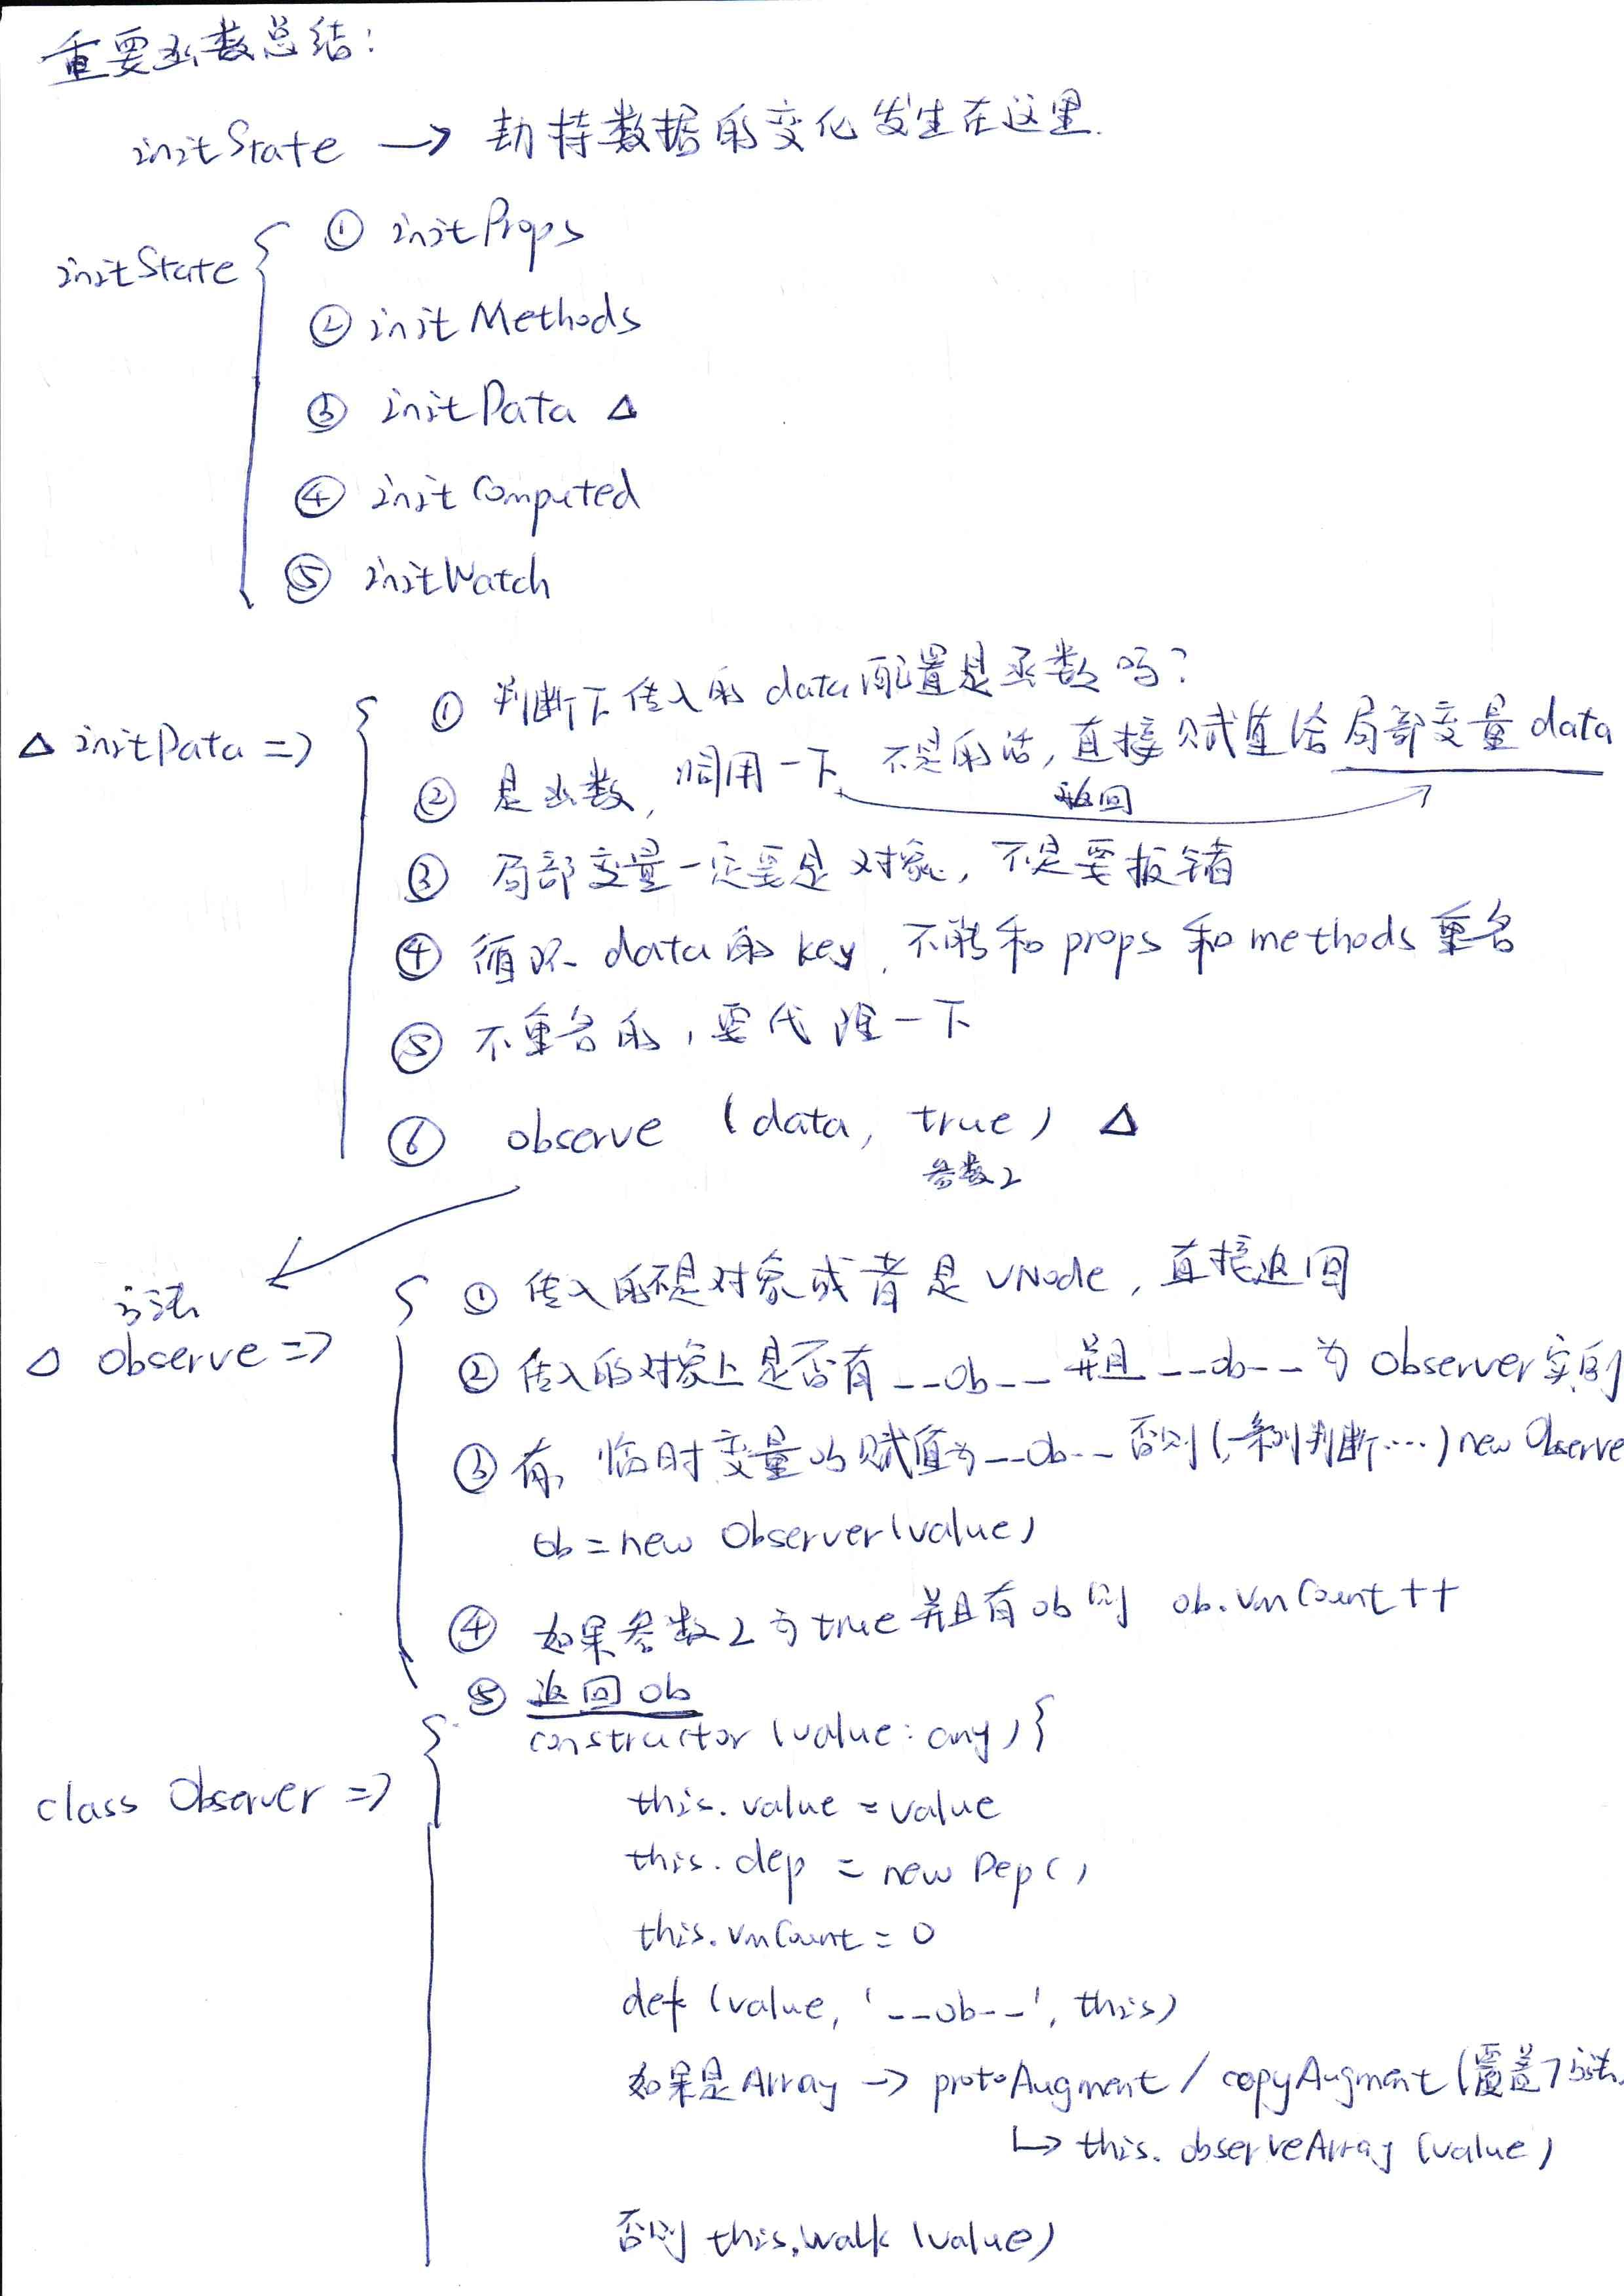 重要函数总结:
initState → 劫持数据的变化发生在这里.
initState
① initProps
② initMethods
③ initData △
④ initComputed
⑤ initWatch
△ initData =>
① 判断下传入的 data 配置是函数吗?
② 是函数, 调用一下, 不是的话, 直接赋值给局部变量 data
返回
③ 局部变量一定要是对象, 不是要报错
④ 循环 data 的 key, 不能和 props 和 methods 重名
⑤ 不重名的, 要代理一下
⑥ observe (data, true) △
参数2
方法
△ observe =>
① 传入的不是对象或者是 VNode, 直接返回
② 传入的对象上是否有 __ob__ 并且 __ob__ 为 Observer 实例
③ 有, 临时变量ob赋值为 __ob__ 否则 (一系列判断...) new Observe
ob = new Observer(value)
④ 如果参数2为 true 并且有 ob 则 ob.vmCount ++
⑤ 返回 ob
class Observer =>
constructor (value: any) {
this.value = value
this.dep = new Dep()
this.vmCount = 0
def (value, '__ob__', this)
如果是 Array → protoAugment / copyAugment (覆盖7方法
↳ this.observeArray (value)
否则 this.walk (value)